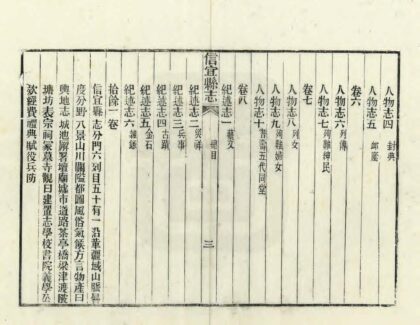 人物志四 封典
人物志五 邮廕
卷六
人物志六 列傳
人物志七 列難紳民
卷七
人物志八 列女
人物志九 殉難婦女
人物志十 耆壽 五代同堂
卷八
信宜縣志 總目 三
紀述志一 藝文
紀述志二 災祥
紀述志三 兵事
紀述志四 古蹟
紀述志五 金石
紀述志六 雜錄
拾餘一卷
信宜縣志分門六列目五十有一沿革疆域山縣晷
度分野八景山川關隘都圖風俗氣候方言物產曰
輿地志城池廨署壇廟墟市道路茶亭橋梁津渡陂
塘坊表宗祠冢墓寺觀曰建置志學校書院義學
欵經費禮典賦役兵防